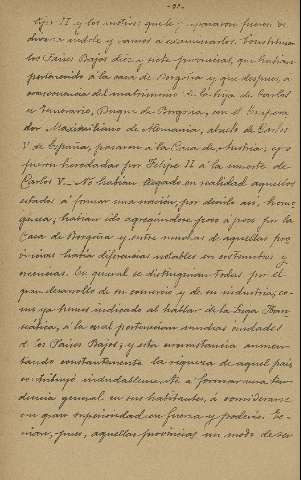 -91-
Felipe II y los motivos que le prepararon fueron de
diversa índole y vamos a examinarlos. Constituían
los Países Bajos diez y siete provincias, que habían
pertenecido á la casa de Borgoña y que despues, a
consecuencia del matrimonio de la hija de Carlos
el Temerario, Duque de Borgoña, con el Empera
dor Maximiliano de Alemania, abuelo de Carlos
V de España, pasaron a la Casa de Austria; y
fueron heredadas por Felipe II á la muerte de
Carlos V.- No habian llegado en realidad aquellos
estados á formar una nación, por decirlo así, homo
génea; habian ido agregándose poco a poco por la
Casa de Borgoña y entre muchas de aquellas pro
vincias había diferencias notables en costumbres y
creencias. En general se distinguían todas por el
gran desarrollo de su comercio y de su industria; co
mo ya hemos indicado al hablar de la Liga Han
seática, á la cual pertenecian muchas ciudades
de los Países Bajos; y esta circunstancia aumen
tando constantemente la riqueza de aquel país
contribuyó indudablemente a formar una ten
dencia general en sus habitantes, á considerarse
con gran superioridad en fuerza y poderío. Te-
nian, pues, aquellas provincias un modo de ser